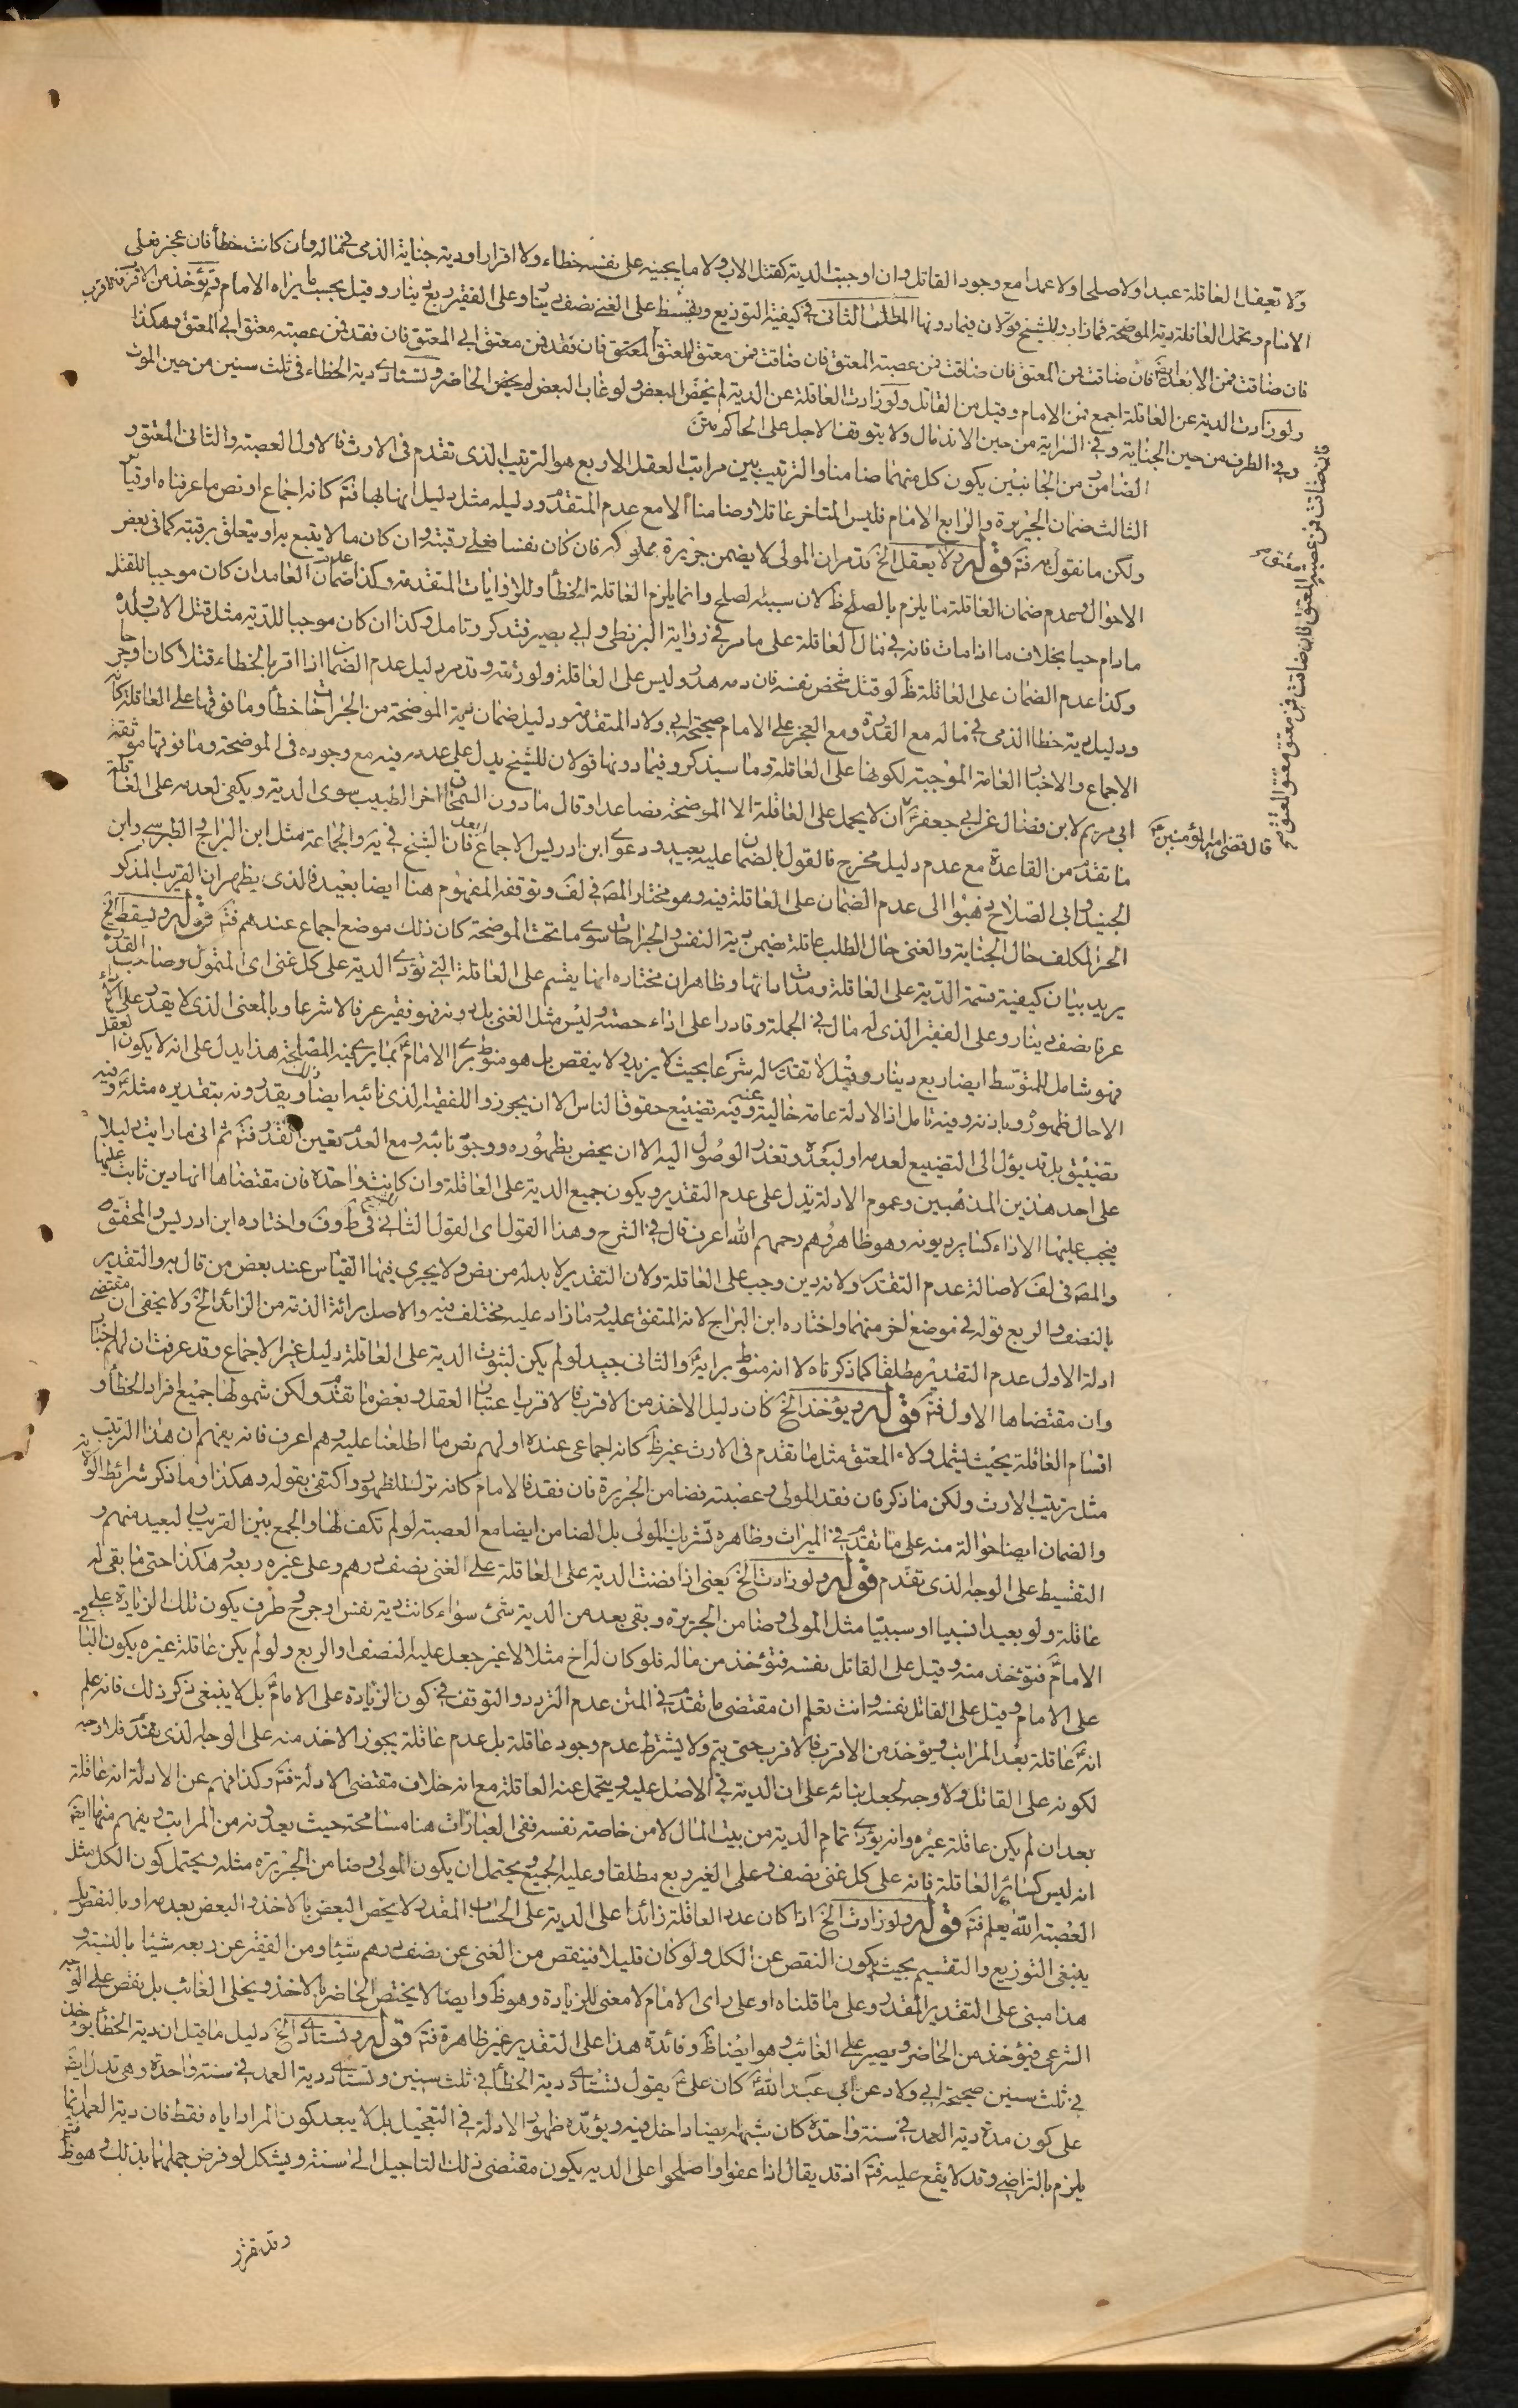 ولا تعقل العاقلة عبدا ولا صلحا ولا عمدا مع وجود القاتل وان اوجبت الدية كقتل الاب ولا ما يجنيه على نفسه خطاء ولا اقرار اودية جناية الذمى فى ماله وان كانت خطأ فان عجز فعلى
الامام وتحمل العاقلة دية الموضحة فما زاد وللشيخ قولان فيما دونها المطلب الثانى فى كيفية التوزيع ويقسط على الغنى نصف دينار وعلى الفقير ربع دينار وقيل بحسب ما يراه الامام ثم يؤخذ من الاقرب فالاقرب
فان ضاقت فمن الابعد ايضا فان ضاقت فمن المعتق فان ضاقت فمن عصبة المعتق فان ضاقت فمن معتق المعتق فان فقد فمن معتق ابى المعتق فان فقد فمن عصبة معتق ابى المعتق وهكذا
ولو زادت الدية عن العاقلة اجمع فمن الامام وقيل من القاتل ولو زادت العاقلة عن الدية لم يخص البعض ولو غاب البعض لم يخص الحاضر وتستادى دية الخطاء فى ثلث سنين من حين الموت
وفى الطرف من حين الجناية وفى السراية من حين الاندمال ولا يتوقف الاجل على الحاكم متن
الضامن من الجانبين يكون كل منهما ضامنا والترتيب بين مراتب العقل الاربع هو الترتيب الذى تقدم فى الارث فالاول العصبة والثانى المعتق و
الثالث ضمان الجريرة والرابع الامام فليس المتاخر عاقلا وضامنا الا مع عدم المتقدم ودليله مثل دليل انها بها فتم كانه اجماع او نص ما عرفناه او قياس
ولكن ما نقول به فتم قوله ولا يعقل الخ قد مر ان المولى لا يضمن جريرة مملوكه فان كان نفسا فعلى رقبته وان كان ما لا يتبع به او يتعلق برقبته كما فى بعض
الاحوال وعدم ضمان العاقلة ما يلزم بالصلح ظ لان سببه لصلح وانما يلزم العاقلة الخطأ وللروايات المتقدمة وكذا عدم ضمان العامد ان كان موجبا للقتل
ما دام حيا بخلاف ما اذا مات فانه فى مال العاقلة على ما مر فى رواية البزنطى وابى بصير فتذكر وتامل وكذا ان كان موجبا للدية مثل قتل الاب ولده
وكذا عدم الضمان على العاقلة ظ لو قتل شخص نفسه فان دمه هدر وليس على العاقلة ولورثته وقد مر دليل عدم الضمان اذا اقر بالخطاء قتلا كان او جرحا
ودليل دية خطا الذمى فى ماله مع القدرة ومع العجز على الامام صحيحة ابى ولاد المتقدمة ودليل ضمان دية الموضحة من الجراحات خطأ وما فوقها على العاقلة كانه
الاجماع والاخبار العامة الموجبة لكونها على العاقلة وما سيذكر وفيما دونها قولان للشيخ يدل على عدمه فيه مع وجوده فى الموضحة وما فوقها موثقة
ابى مريم لابن فضال عن ابى جعفر ع ان لا يحمل على العاقلة الا الموضحة فصاعدا وقال ما دون السمحاق اجر الطبيب سوى الدية ويكفى لعدمه على العاقلة
قال قضى امير المؤمنين ع
ما تقدم من القاعدة مع عدم دليل مخرج فالقول بالضمان عليه بعيد ودعوى ابن ادريس الاجماع بعيد فان الشيخ فى يه والجماعة مثل ابن البراج والطبرسى وابن
الجنيد وابى الصلاح ذهبوا الى عدم الضمان على العاقلة فيه وهو مختار المصـ فى لف وتوقفه المفهوم هنا ايضا بعيد فالذى يظهر ان القريب المذكور
الحر المكلف حال الجناية والغنى حال الطلب عاقلة يضمن دية النفس والجراحات سوى ما تحت الموضحة كان ذلك موضع اجماع عندهم فتم قوله ويقسط الخ
يريد بيان كيفية قسمة الدية على العاقلة ومدات ادائها وظاهر ان مختاره انها يقسم على العاقلة التى تؤدى الدية على كل غنى اى المتمول وصاحب القدرة
عرفا نصف دينار وعلى الفقير الذى له مال فى الجملة وقادرا على اداء حصته وليس مثل الغنى بل دونه فهو فقير عرفا لا شرعا وبالمعنى الذى لا يقدر على اداء
فهو شامل للمتوسط ايضا ربع دينار وقيل لا تقدير له شرعا بحيث لا يزيد ولا ينقص بل هو منوط براى الامام بما يرى فيه المصلحة هذا يدل على انه لا يكون العقل
الا حال ظهوره وباذنه وفيه تامل اذ الادلة عامة خالية عنه وفيه تضييع حقوق الناس الا ان يجوزوا للفقيه الذى نائبه ايضا ويقدر ونه بتقديره مثله وفيه
تضييق بل قد يؤل الى التضييع لعدمه او لبعده وتعذر الوصول اليه الا ان يخص بظهوره ووجود نائبه ومع العدم تعين القدر فتم ثم انى ما رايت دليلا
على احد هذين المذهبين وعموم الادلة تدل على عدم التقدير ويكون جميع الدية على العاقلة وان كانت واحدة فان مقتضاها انها دين ثابت عليها
فيجب عليها الاداء كساير ديونه وهو ظاهر وهم رحمهم الله اعرف قال فى الشرح وهذا القول اى القول الثانى للشيخ فى ط وف واختاره ابن ادريس والمحقق
والمصـ فى لف لاصالة عدم التقدير ولانه دين وجب على العاقلة ولان التقدير لا بد له من نص ولا يجرى فيها القياس عند بعض من قال به والتقدير
بالنصف والربع قوله فى موضع اخر منهما واختاره ابن البراج لانه المتفق عليه وما زاد عليه مختلف فيه والاصل برائة الذمة من الزائد الخ ولا يخفى ان مقتضى
ادلة الاول عدم التقدير مطلقا كما ذكرناه لا انه منوط برايه والثانى جيد لو لم يكن لثبوت الدية على العاقلة دليل غير الاجماع وقد عرفت ان لهم اخبار
وان مقتضاها الاول فتم قوله ويؤخذ الخ كان دليل الاخذ من الاقرب فالاقرب اعتبار العقل وبعض ما تقدم ولكن شمولها جميع افراد الخطأ و
اقسام العاقلة بحيث يشمل ولاء المعتق مثل ما تقدم فى الارث غير ظ كانه اجماعى عنده او لهم نص ما اطلعنا عليه وهم اعرف فانه يفهم ان هذا الترتيب
مثل ترتيب الارث ولكن ما ذكر فان فقد المولى وعصبته فضامن الجريرة فان فقد فالامام كانه ترك للظهور واكتفى بقوله وهكذا وما ذكر شرائط الولاية
والضمان ايضا حوالة منه على ما تقدم فى الميراث وظاهره تشريك المولى بل الضامن ايضا مع العصبة لو لم تكف لها والجمع بين القريب والبعيد منهم و
التقسيط على الوجه لذى تقدم قوله ولو زادت الخ يعنى اذا فضت الدية على العاقلة على الغنى نصف درهم وعلى غيره ربعه وهكذا حتى ما بقى له
عاقلة ولو بعيدا نسبيا او سببيا مثل المولى وضامن الجريرة وبقى بعد من الدية شئ سواء كانت دية نفس او جرح طرف يكون تلك الزيادة على
الامام فتؤخذ منه وقيل على القاتل نفسه فتؤخذ من ماله فلو كان له اخ مثلا لا غير جعل عليه النصف او الربع ولو لم يكن عاقلة غيره يكون الباقى
على الامام وقيل على القاتل نفسه وانت تعلم ان مقتضى ما تقدم فى المتن عدم التردد والتوقف فى كون الزيادة على الامام بل لا ينبغى ذكر ذلك فانه علم
انه عاقلة بعد المراتب ويؤخذ من الاقرب فالاقرب حتى يتم ولا يشترط عدم وجود عاقلة بل عدم عاقلة يجوز الاخذ منه على الوجه لذى تقدم فلا وجه
لكونه على القاتل ولا وجه لجعل بنائه على ان الدية فى الاصل عليه ويتحمل عنه العاقلة مع انه خلاف مقتضى الادلة فتم وكذا فهم عن الادلة انه عاقلة
بعد ان لم يكن عاقلة غيره وانه يؤدى تمام الدية من بيت المال لا من خاصته نفسه ففى العبارات هنا مسامحة حيث يعدونه من المراتب ويفهم منها ايضا
انه ليس كسائر العاقلة فانه على كل غنى نصف وعلى الغير ربع مطلقا وعليه الجميع ويحتمل ان يكون المولى وضامن الجريرة مثله ويحتمل كون الكل مثل
العصبة الله يعلم فتم قوله ولو زادت الخ اذا كان عدد العاقلة زائدا على الدية على الحساب المقدر لا يخص البعض بالاخذ والبعض بعدمه او بالنقص بل
ينبغى التوزيع والتقسيم بحيث يكون النقص عن الكل ولو كان قليلا فينقص من الغنى عن نصف درهم شيئا ومن الفقير عن ربعه شيئا بالنسبة و
هذا مبنى على التقدير المقدر وعلى ما قلناه او على راى الامام لا معنى للزيادة وهو ظ وايضا لا يختص الحاضر بالاخذ ويخلى الغائب بل بقص على الوجه
الشرعى فيؤخذ من الحاضر ويصير على الغائب وهو ايضا ظ وفائدة هذا على التقدير غير ظاهرة فتم قوله وتستادى الخ دليل ما قيل ان دية الخطأ يؤخذ
فى ثلث سنين صحيحة ابى ولاد عن ابى عبد الله ع كان على ع يقول تستادى دية الخطأ فى ثلث سنين وتستادى دية العمد فى سنة واحدة وهى تدل ايضا
على كون مدة دية العمد فى سنة واحدة كان شبهه ايضا داخل فيه ويؤيده ظهور الادلة فى التعجيل بل لا يبعد كون المراد اياه فقط فان دية العمد انما
يلزم بالتراضى وقد لا يقع عليه فتم اذ قد يقال اذا عفوا واصلحوا على الدية يكون مقتضى ذلك التاجيل الى سنة ويشكل لو فرض جهلهما بذلك وهو ظ فتم
وقد تقرر
فان ضاقت فمن عصبة المعتق فان ضاقت فمن معتق معتق المعتق